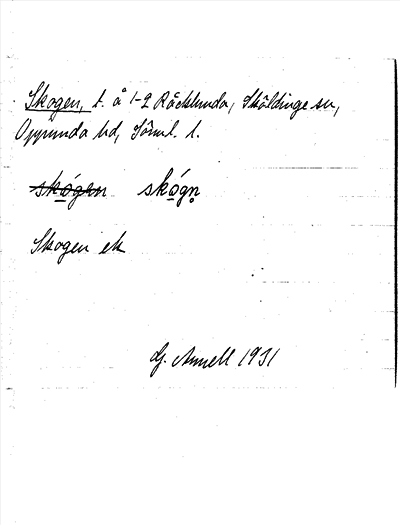 Skogen, t. å 1-2 Räcklunda, Sköldinge sn,
Oppunda hd, Sörml. l.
skógen skógn̥
Skogen ek
Gj. Annell 1931